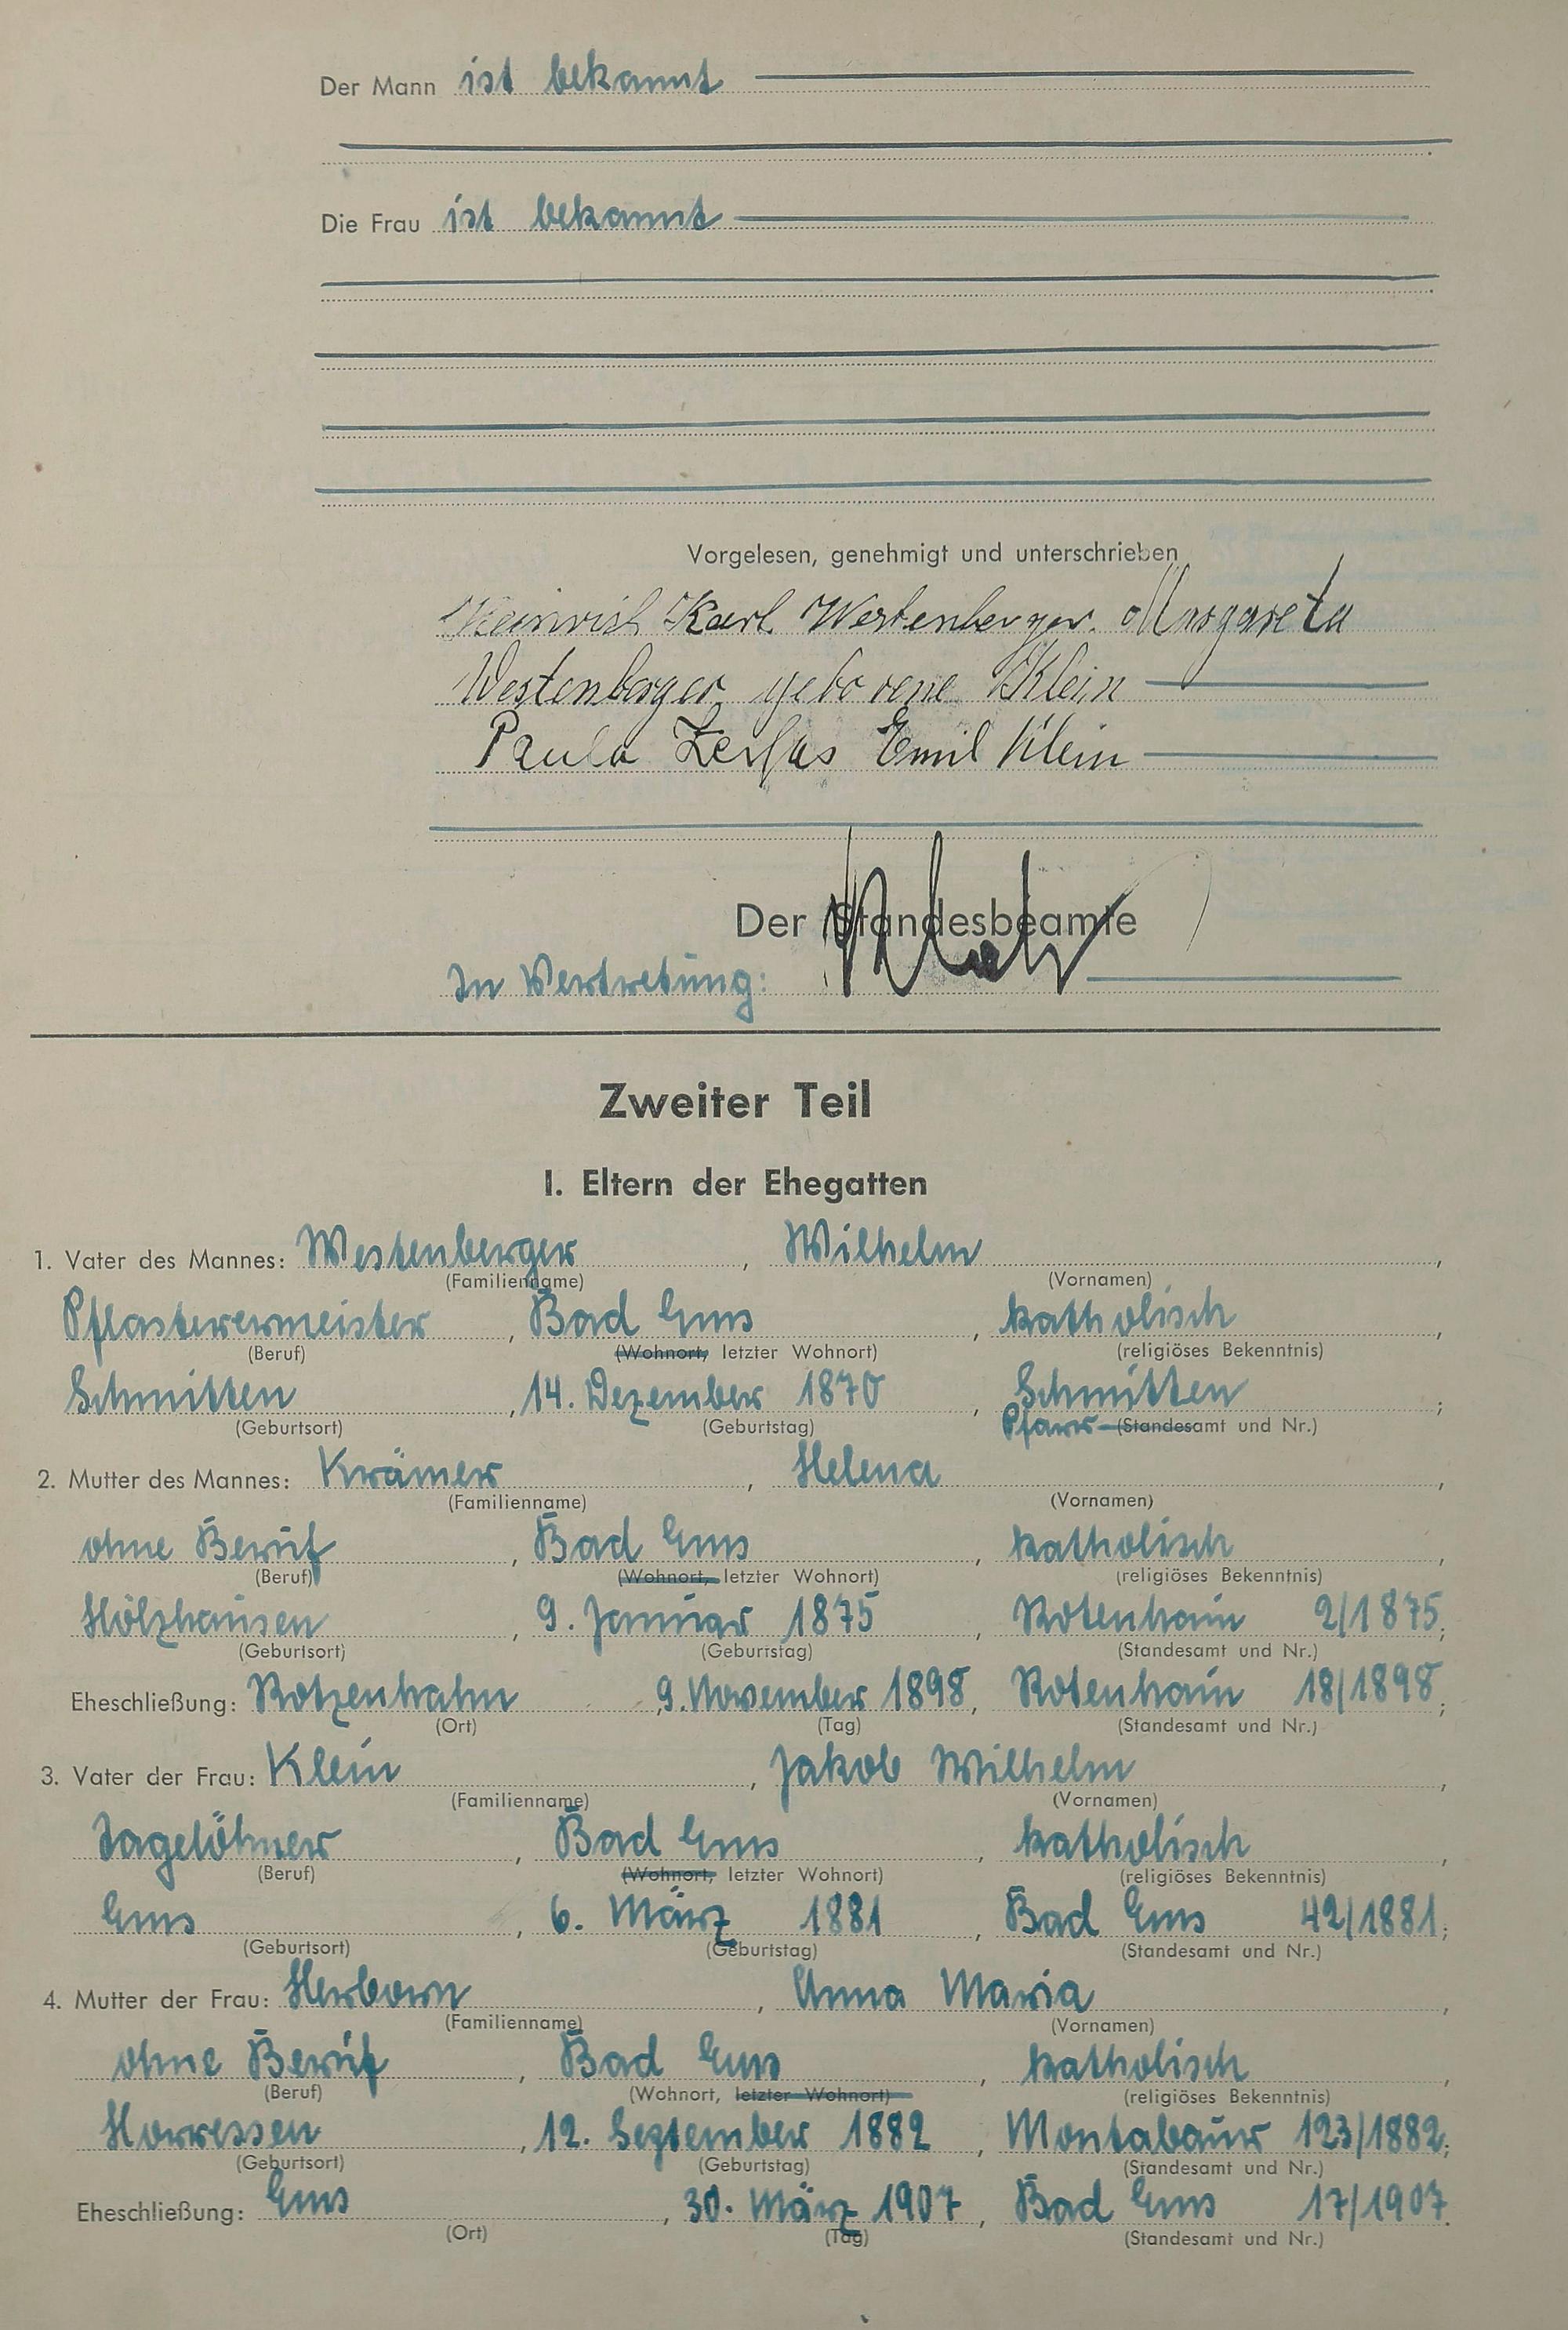 Der Mann ist bekannt
Die Frau ist bekannt
Vorgelesen, genehmigt und unterschrieben
Heinrich Karl Westenberger. Margareta
Westenberger geborene Klein
Paula Emil Klein
Der Standesbeamte
In Vertretung:
Zweiter Teil
I. Eltern der Ehegatten
1. Vater des Mannes: Westenberger, Wilhelm,
(Familienname) (Vornamen)
Pflasterermeister, Bad Ems, katholisch,
(Beruf) (Wohnort, letzter Wohnort) (religiöses Bekenntnis)
Schmitten, 14. Dezember 1870, Schmitten;
(Geburtsort) (Geburtstag) Pfarr-(Standesamt und Nr.)
2. Mutter des Mannes: Krämer, Helena,
(Familienname) (Vornamen)
ohne Beruf, Bad Ems, katholisch,
(Beruf) (Wohnort, letzter Wohnort) (religiöses Bekenntnis)
Hölzhausen, 9. Januar 1875, Rotenhain 2/1875;
(Geburtsort) (Geburtstag) (Standesamt und Nr.)
Eheschließung: Rotzenhahn, 9. November 1898, Rotenhain 18/1898;
(Ort) (Tag) (Standesamt und Nr.)
3. Vater der Frau: Klein, Jakob Wilhelm,
(Familienname) (Vornamen)
Tagelöhner, Bad Ems, katholisch,
(Beruf) (Wohnort, letzter Wohnort) (religiöses Bekenntnis)
Ems, 6. März 1881, Bad Ems 42/1881;
(Geburtsort) (Geburtstag) (Standesamt und Nr.)
4. Mutter der Frau: Herborn, Anna Maria,
(Familienname) (Vornamen)
ohne Beruf, Bad Ems, katholisch,
(Beruf) (Wohnort, letzter Wohnort) (religiöses Bekenntnis)
Horressen, 12. September 1882, Montabaur 123/1882;
(Geburtsort) (Geburtstag) (Standesamt und Nr.)
Eheschließung: Ems, 30. März 1907, Bad Ems 17/1907.
(Ort) (Tag) (Standesamt und Nr.)